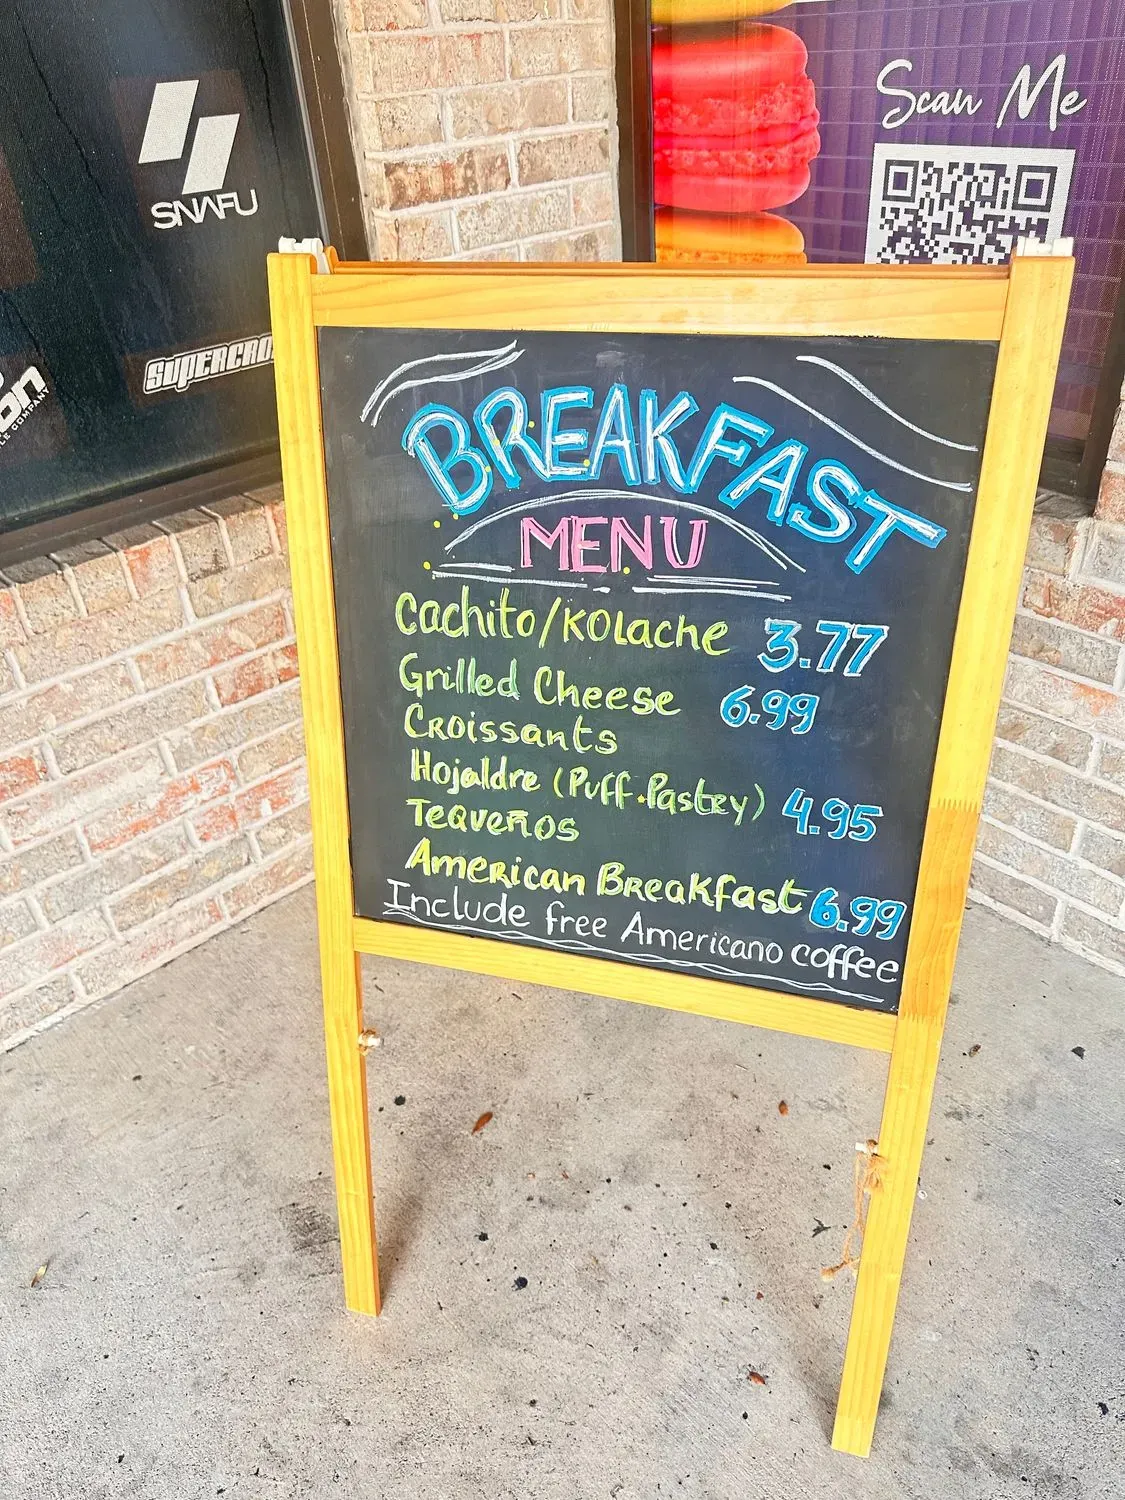 SNAFU
SUPERCRO
on
LE COMPANY
Scan Me
BREAKFAST
MENU
Cachito/Kolache 3.77
Grilled Cheese 6.99
Croissants
Hojaldre (Puff.Pastry) 4.95
Tequeños
American Breakfast 6.99
Include free Americano coffee